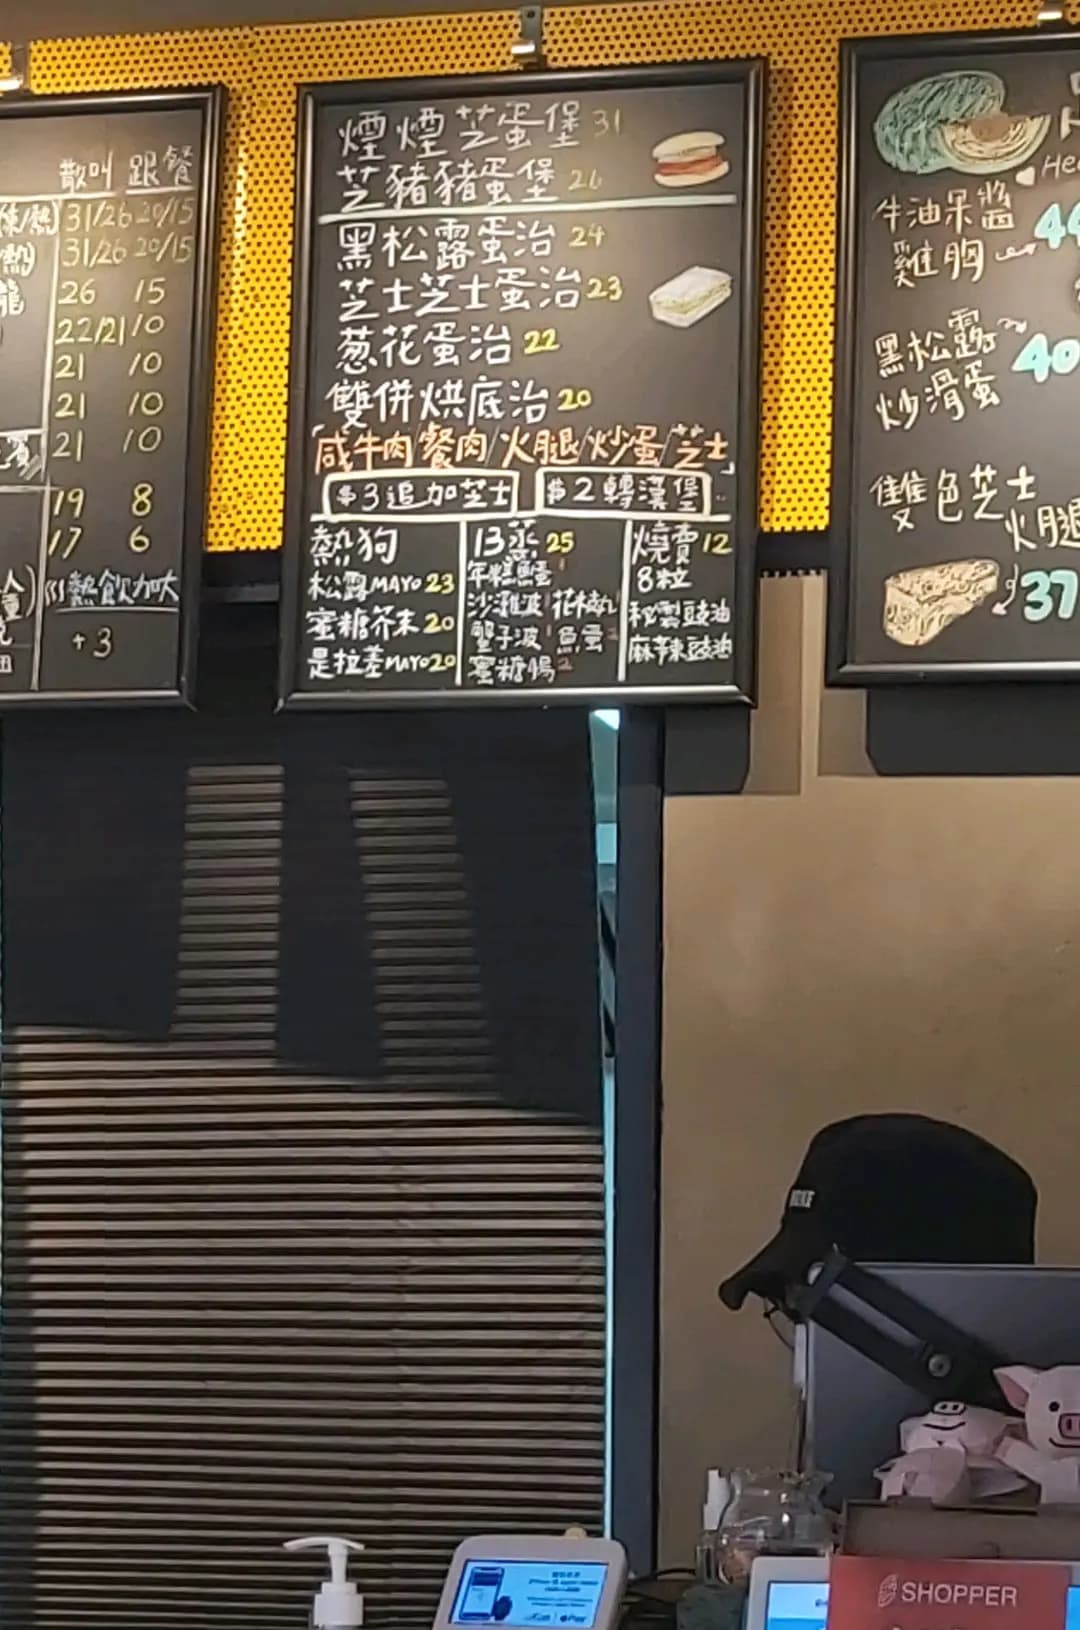 散叫 跟餐
31/26 20/15
31/26 20/15
26 15
22/21 10
21 10
21 10
21 10
19 8
17 6
熱飲加大
+3
煙煙芝蛋堡 31
芝豬豬蛋堡 26
黑松露蛋治 24
芝士芝士蛋治 23
葱花蛋治 22
雙併烘底治 20
「咸牛肉/餐肉/火腿/炒蛋/芝士」
$3追加芝士
$2轉漢堡
熱狗
松露MAYO 23
蜜糖芥末 20
是拉差MAYO 20
13蒸 25
年糕
沙灘波
蟹子波 魚蛋
蜜糖腸
燒賣 12
8粒
秘製豉油
麻辣豉油
牛油果醬
雞胸
黑松露 40
炒滑蛋
雙色芝士
火腿
37
SHOPPER